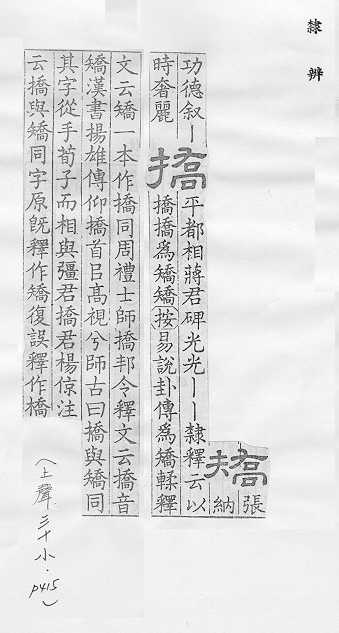 隸辨
矯
張
納
功德叙丨
時奢麗
撟
平都相蔣君碑光光丨丨隸釋云以
撟撟為矯矯按易說卦傳為矯輮釋
文云矯一本作撟同周禮士師撟邦令釋文云撟音
矯漢書揚雄傳仰撟首㠯高視兮師古曰撟與矯同
其字從手荀子而相與彊君撟君楊倞注
云撟與矯同字原既釋作矯復誤釋作橋
(上聲三十小．P415)